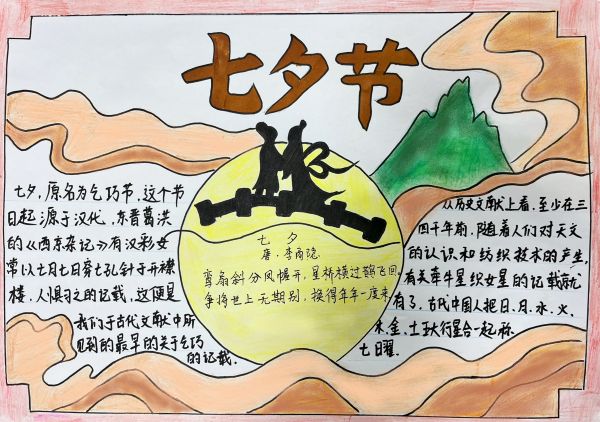 七夕节
七夕,原名为乞巧节,这个节
日起源于汉代,东晋葛洪
的《西京杂记》有汉彩女
常以七月七日穿七孔针于开襟
楼,人惧习之的记载,这便是
我们于古代文献中所
见到的最早的关于乞巧
的记载.
七夕
唐·李商隐
鸾扇斜分凤幄开,星桥横过鹊飞回.
争将世上无期别,换得年年一度来.
从历史文献上看,至少在三
四千年前,随着人们对天文
的认识和纺织技术的产生,
有关牵牛星织女星的记载就
有了,古代中国人把日、月、水、火、
木、金、土
合一起称
七曜.